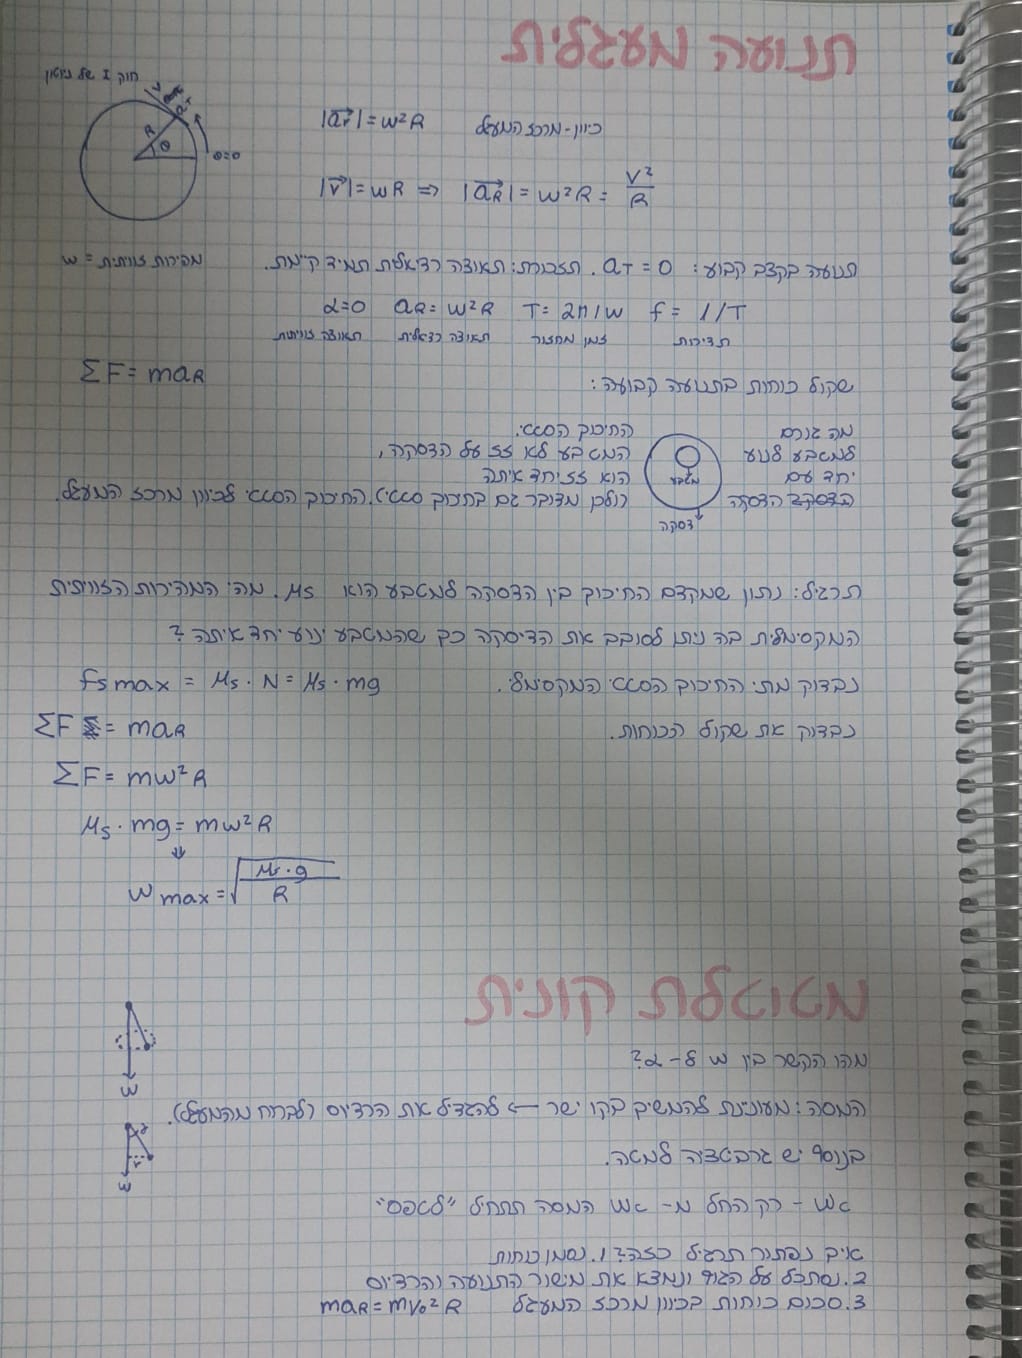 תנועה מעגלית
חוק I של ניוטון
R
θ
θ=0
|ar| = w²R כיוון - מרכז המעגל
|v| = wR => |aR| = w²R = V²/R
תנועה בקצב קבוע: aT = 0. תזכורת: תאוצה רדיאלית תמיד קיימת.
w = מהירות זוויתית
α=0 aR = w²R T = 2π/w f = 1/T
תאוצה זוויתית תאוצה רדיאלית זמן מחזור תדירות
שקול כוחות בתנועה קבועה:
ΣF = maR
מה גורם
למטבע לנוע
יחד עם
הדסקה
מטבע
דסקה
החיכוך הסטטי.
המטבע לא זז על הדסקה,
הוא זז יחד איתה
ולכן מדובר גם בחיכוך סטטי). החיכוך הסטטי לכיוון מרכז המעגל.
תרגיל: נתון שמקדם החיכוך בין הדסקה למטבע הוא μs. מהי המהירות הזוויתית
המקסימלית בה ניתן לסובב את הדיסקה כך שהמטבע ינוע יחד איתה?
נבדוק מתי החיכוך הסטטי המקסימלי.
fs max = μs · N = μs · mg
נבדוק את שקול הכוחות.
ΣF = maR
ΣF = mw²R
μs · mg = mw²R
⇓
w max = √(μs · g / R)
מטוטלת קונית
w
מהו הקשר בין w ל- α?
המסה: מעוניינת להמשיך בקו ישר → להגדיל את הרדיוס (לברוח מהמעגל).
α
r
w
בנוסף יש גרביטציה למטה.
wc - רק החל מ- wc המסה תתחיל "לטפס"
איך נפתור תרגיל כזה? 1. נסמן כוחות
2. נסתכל על הגוף ונמצא את מישור התנועה והרדיוס
3. סכום כוחות בכיוון מרכז המעגל maR = mw²R